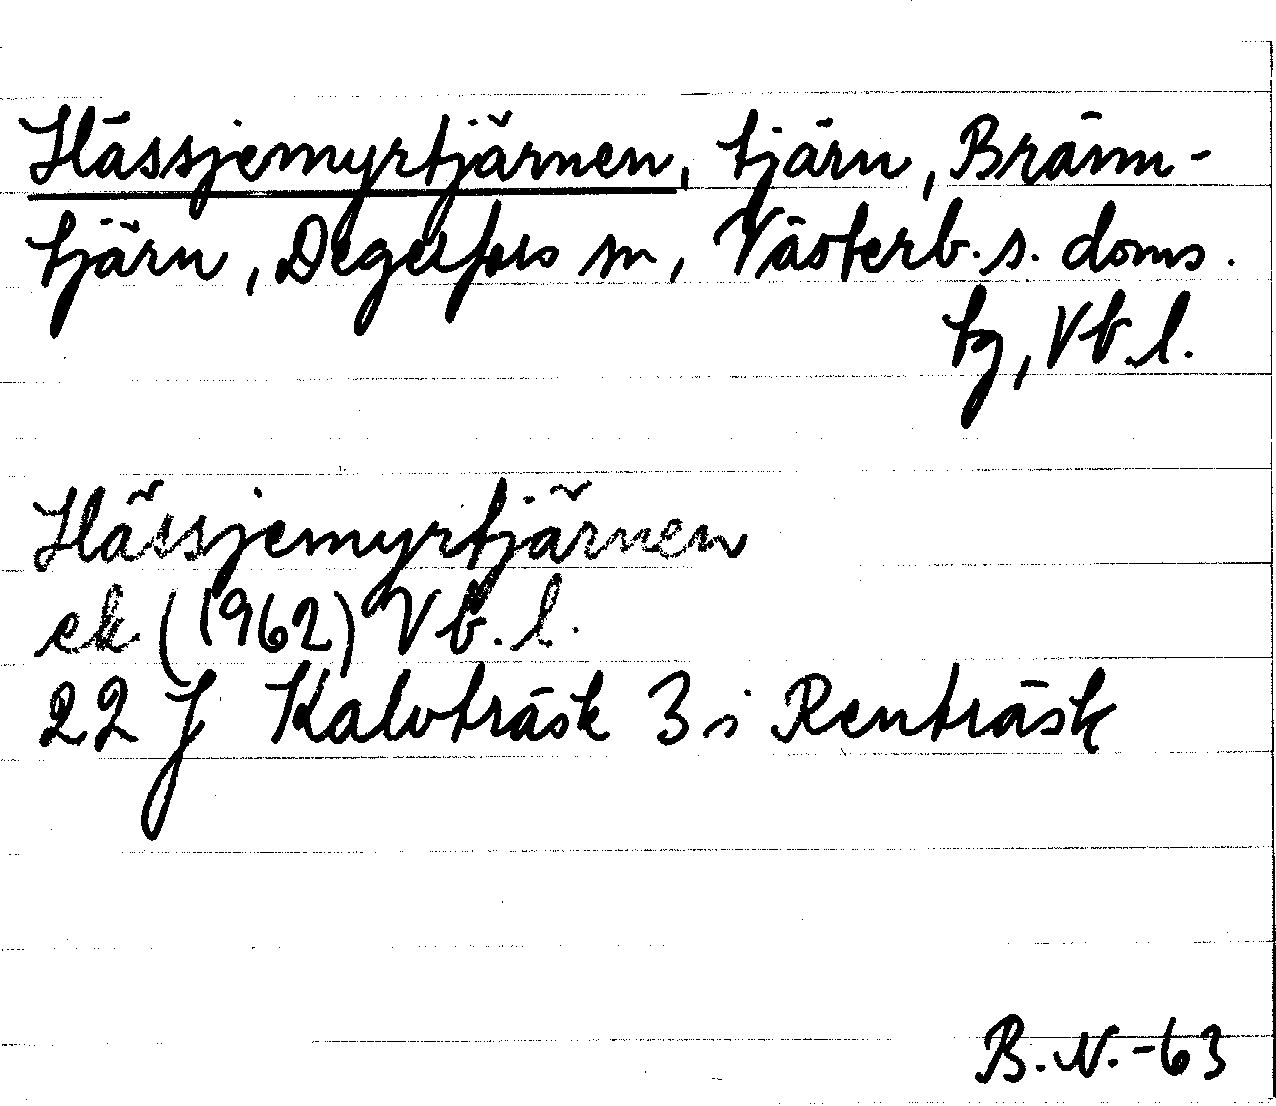 Hässjemyrtjärnen, tjärn, Bränn-
tjärn, Degerfors sn, Västerb. s. doms.
tg, Vb. l.
Hässjemyrtjärnen
ek (1962) Vb. l.
22 J Kalvträsk 3 i Renträsk
B. N. -63